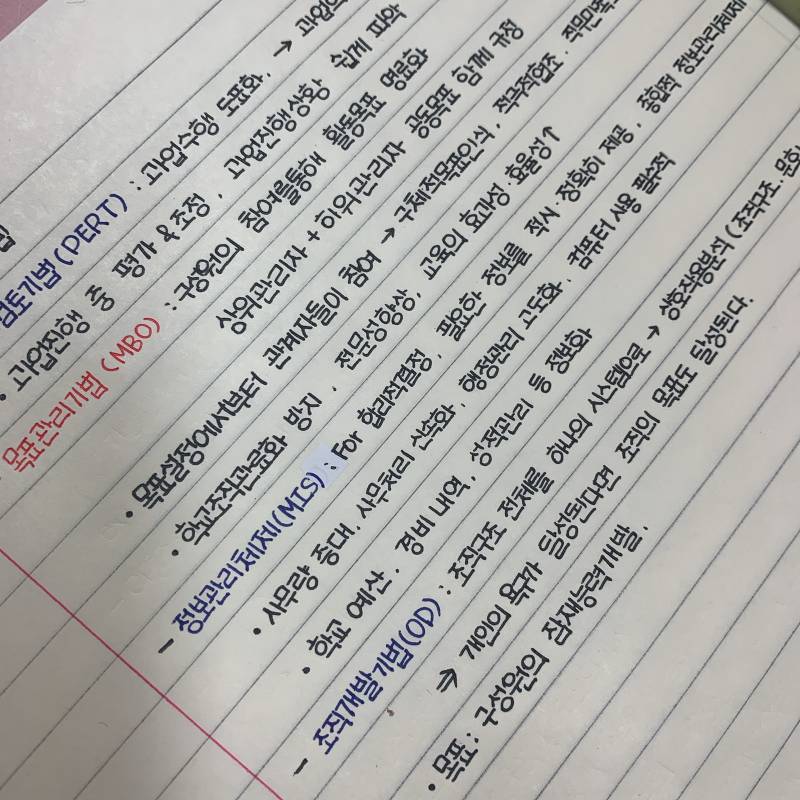 검토기법(PERT) : 과업수행 도표화. → 과업의
• 과업진행 중 평가 & 조정, 과업진행상황 쉽게 파악
목표관리기법 (MBO) : 구성원의 참여를통해 활동목표 명료화
상위관리자 + 하위관리자 공동목표 함께 규정
• 목표설정에서부터 관계자들이 참여 → 구체적목표인식, 적극적협조.
• 학교조직관료화 방지, 전문성향상, 교육의 효과성·효율성↑
- 정보관리체제(MIS) : For 합리적결정, 필요한 정보를 적시·정확히 제공, 종합적 정보관리체제
• 사무량 증대, 사무처리 신속화, 행정관리 고도화. 컴퓨터 사용 필수적
• 학교 예산, 경비 내역, 성적관리 등 정보화
- 조직개발기법(OD) : 조직구조 전체를 하나의 시스템으로 → 상호작용분석 (조직구조. 문화
⇒ 개인의 욕구가 달성된다면 조직의 목표도 달성된다.
• 목표 : 구성원의 잠재능력개발.